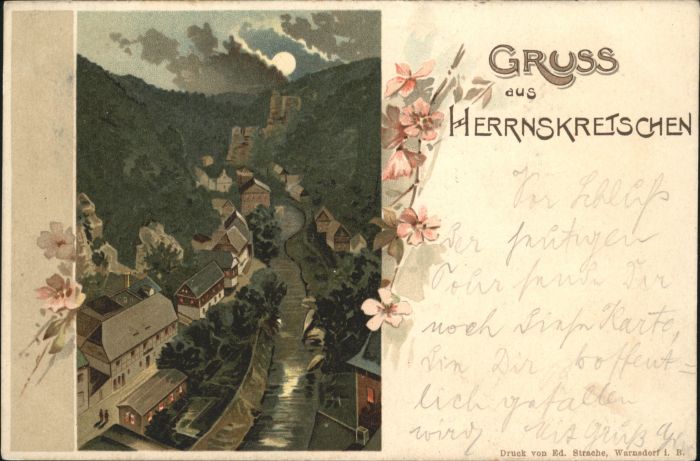 GRUSS
aus
HERRNSKRETSCHEN
Vor Schluß
der heutigen
Tour sende Dir
noch diese Karte,
die Dir hoffent-
lich gefallen
wird. Mit Gruß
Druck von Ed. Strache, Warnsdorf i. B.